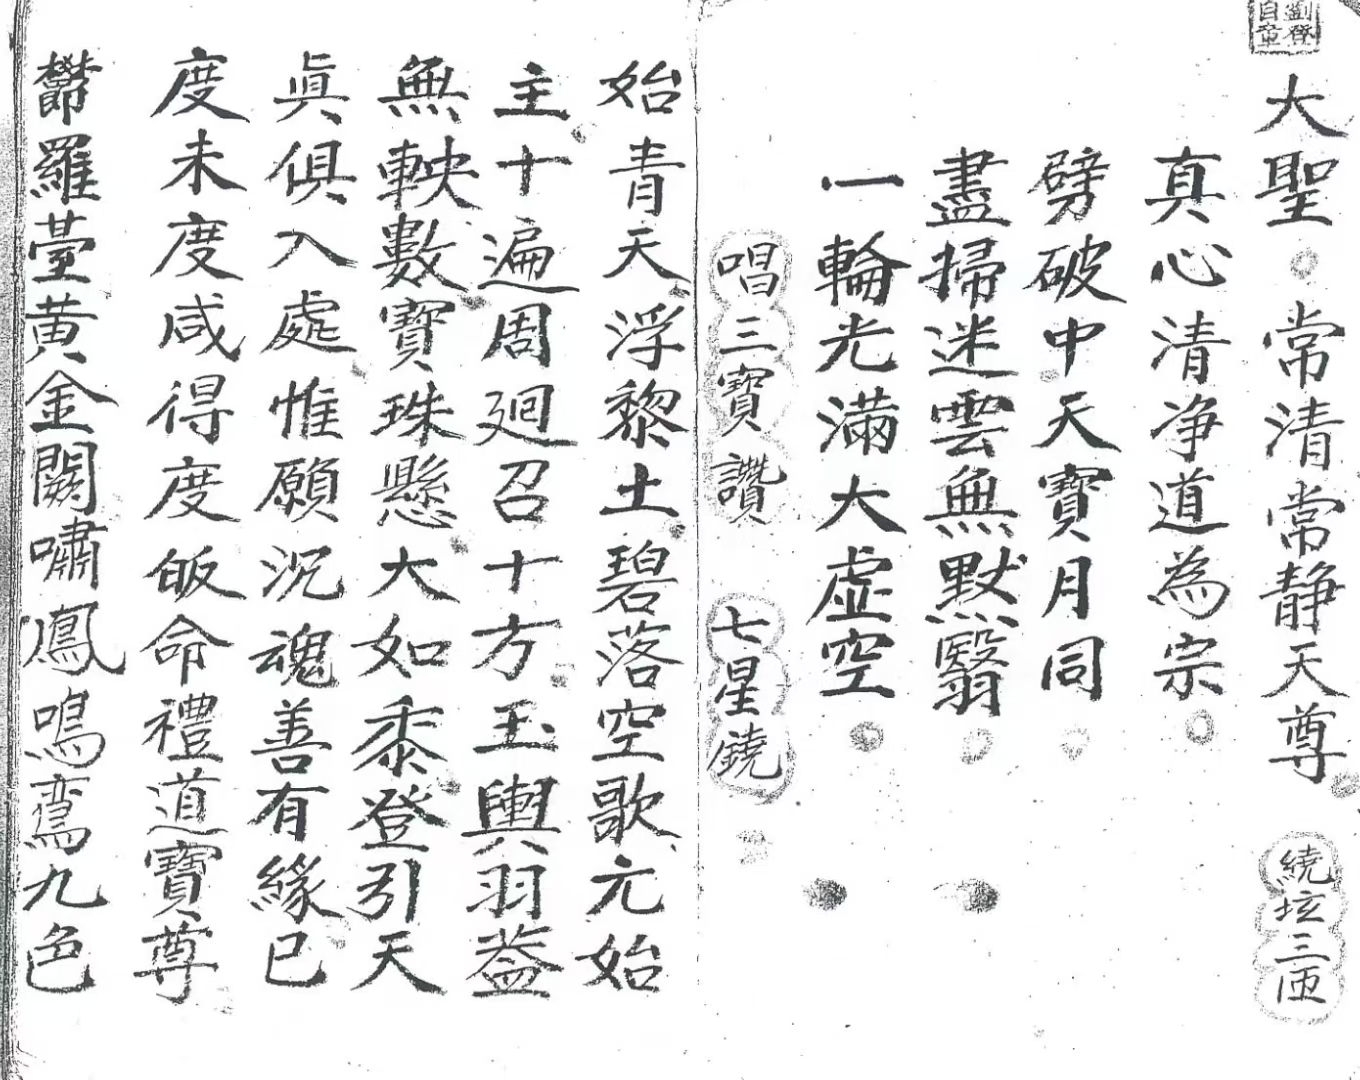 大聖常清常静天尊 繞坛三匝
真心清净道為宗
劈破中天寳月同
盡掃迷雲無黙翳
一輪光滿大虚空
唱三寳讚 七星鐃
始青天浮黎土碧落空歌元始
主十遍周廻召十方玉輿羽葢
無軮數寳珠懸大如黍登引天
眞俱入處惟願沉魂善有緣已
度未度咸得度皈命禮道寳尊
欝羅臺黄金闕嘯鳳鳴鸞九色